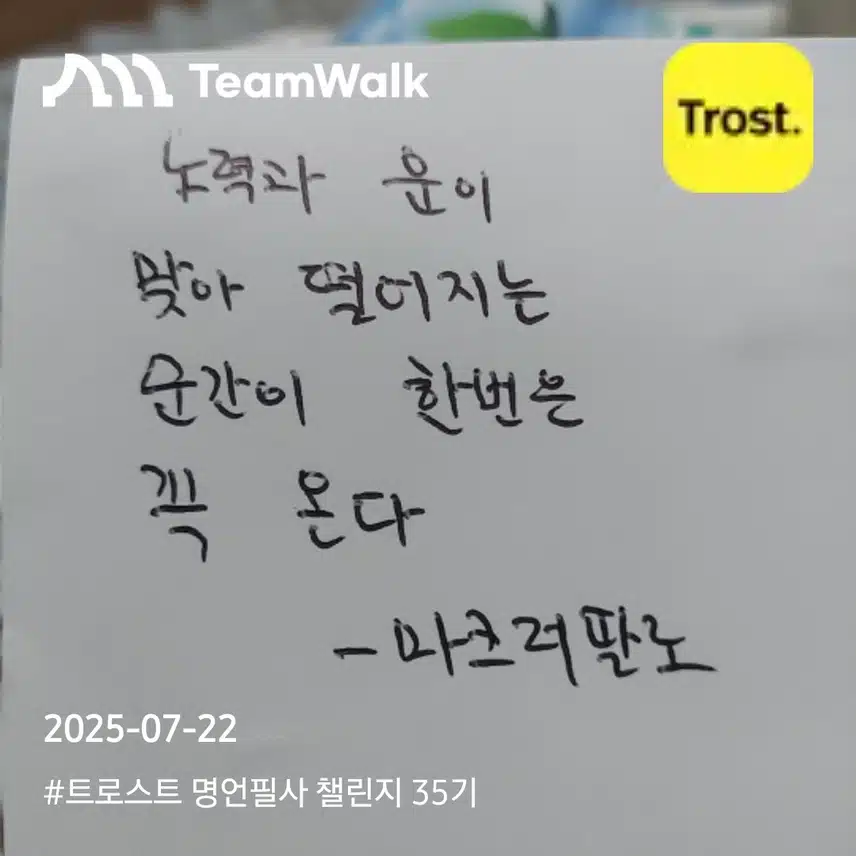 TeamWalk
Trost.
노력과 운이
맞아 떨어지는
순간이 한번은
꼭 온다
-마크러팔로
2025-07-22
#트로스트 명언필사 챌린지 35기